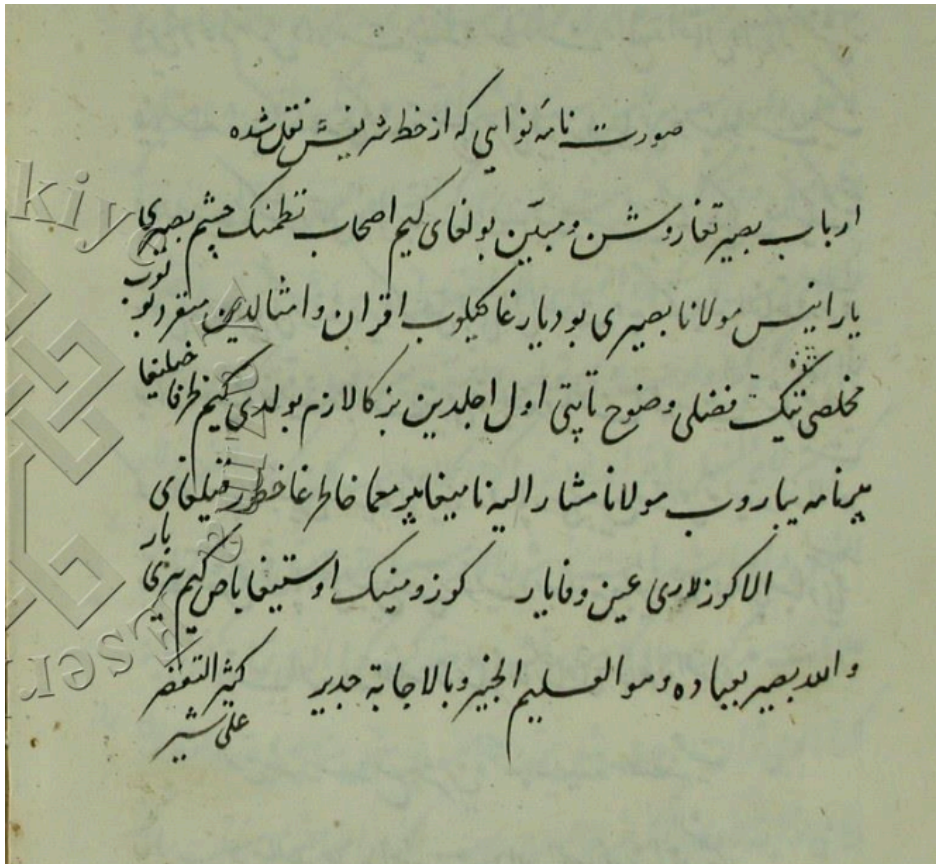 صورت نامهٔ نوایی که از خط شریفش نقل شده
ارباب بصیرتغا روشن و مبیّن بولغای کیم اصحاب نظمنک چشم بصیری
یارانیس مولانا بصیری بو دیارغا کیلوب اقران و امثالدین متفرد
مخلصی نینک فضلی وضوح تاپتی اول اجلدین بزکا لازم بولدی کیم
بیر نامه یباروب مولانا مشار الیه نامیغا بیر معما خاطرغا خطور قیلغای
الا کوزلاری عین وفا یار کوزومینک اوستیغا باص کیم سزی بار
والله بصیر بعباده وهو العلیم الخبیر وبالاجابة جدیر
علی شیر
kiye
Eser